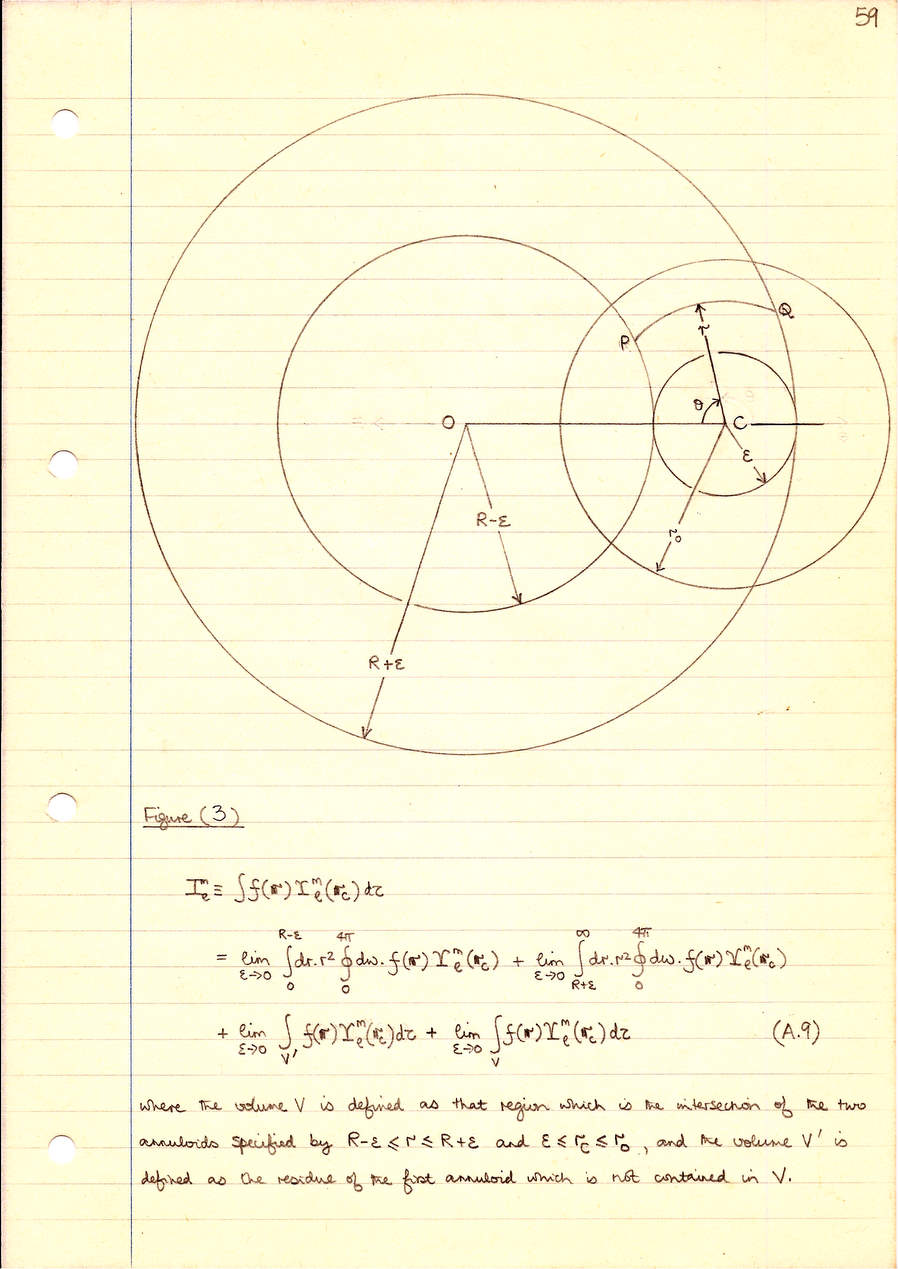 59
Q
P
r
θ
O
C
ε
R-ε
r₀
R+ε
Figure (3)
Iₗᵐ ≡ ∫f(r) Yₗᵐ(r_c) dτ
= lim_{ε→0} ∫₀^{R-ε} dr.r² ∮₀^{4π} dω. f(r) Yₗᵐ(r_c) + lim_{ε→0} ∫_{R+ε}^{∞} dr.r² ∮₀^{4π} dω. f(r) Yₗᵐ(r_c)
+ lim_{ε→0} ∫_{V'} f(r) Yₗᵐ(r_c) dτ + lim_{ε→0} ∫_V f(r) Yₗᵐ(r_c) dτ (A.9)
where the volume V is defined as that region which is the intersection of the two
annuloids specified by R-ε ⩽ r ⩽ R+ε and ε ⩽ r_c ⩽ r₀, and the volume V' is
defined as the residue of the first annuloid which is not contained in V.